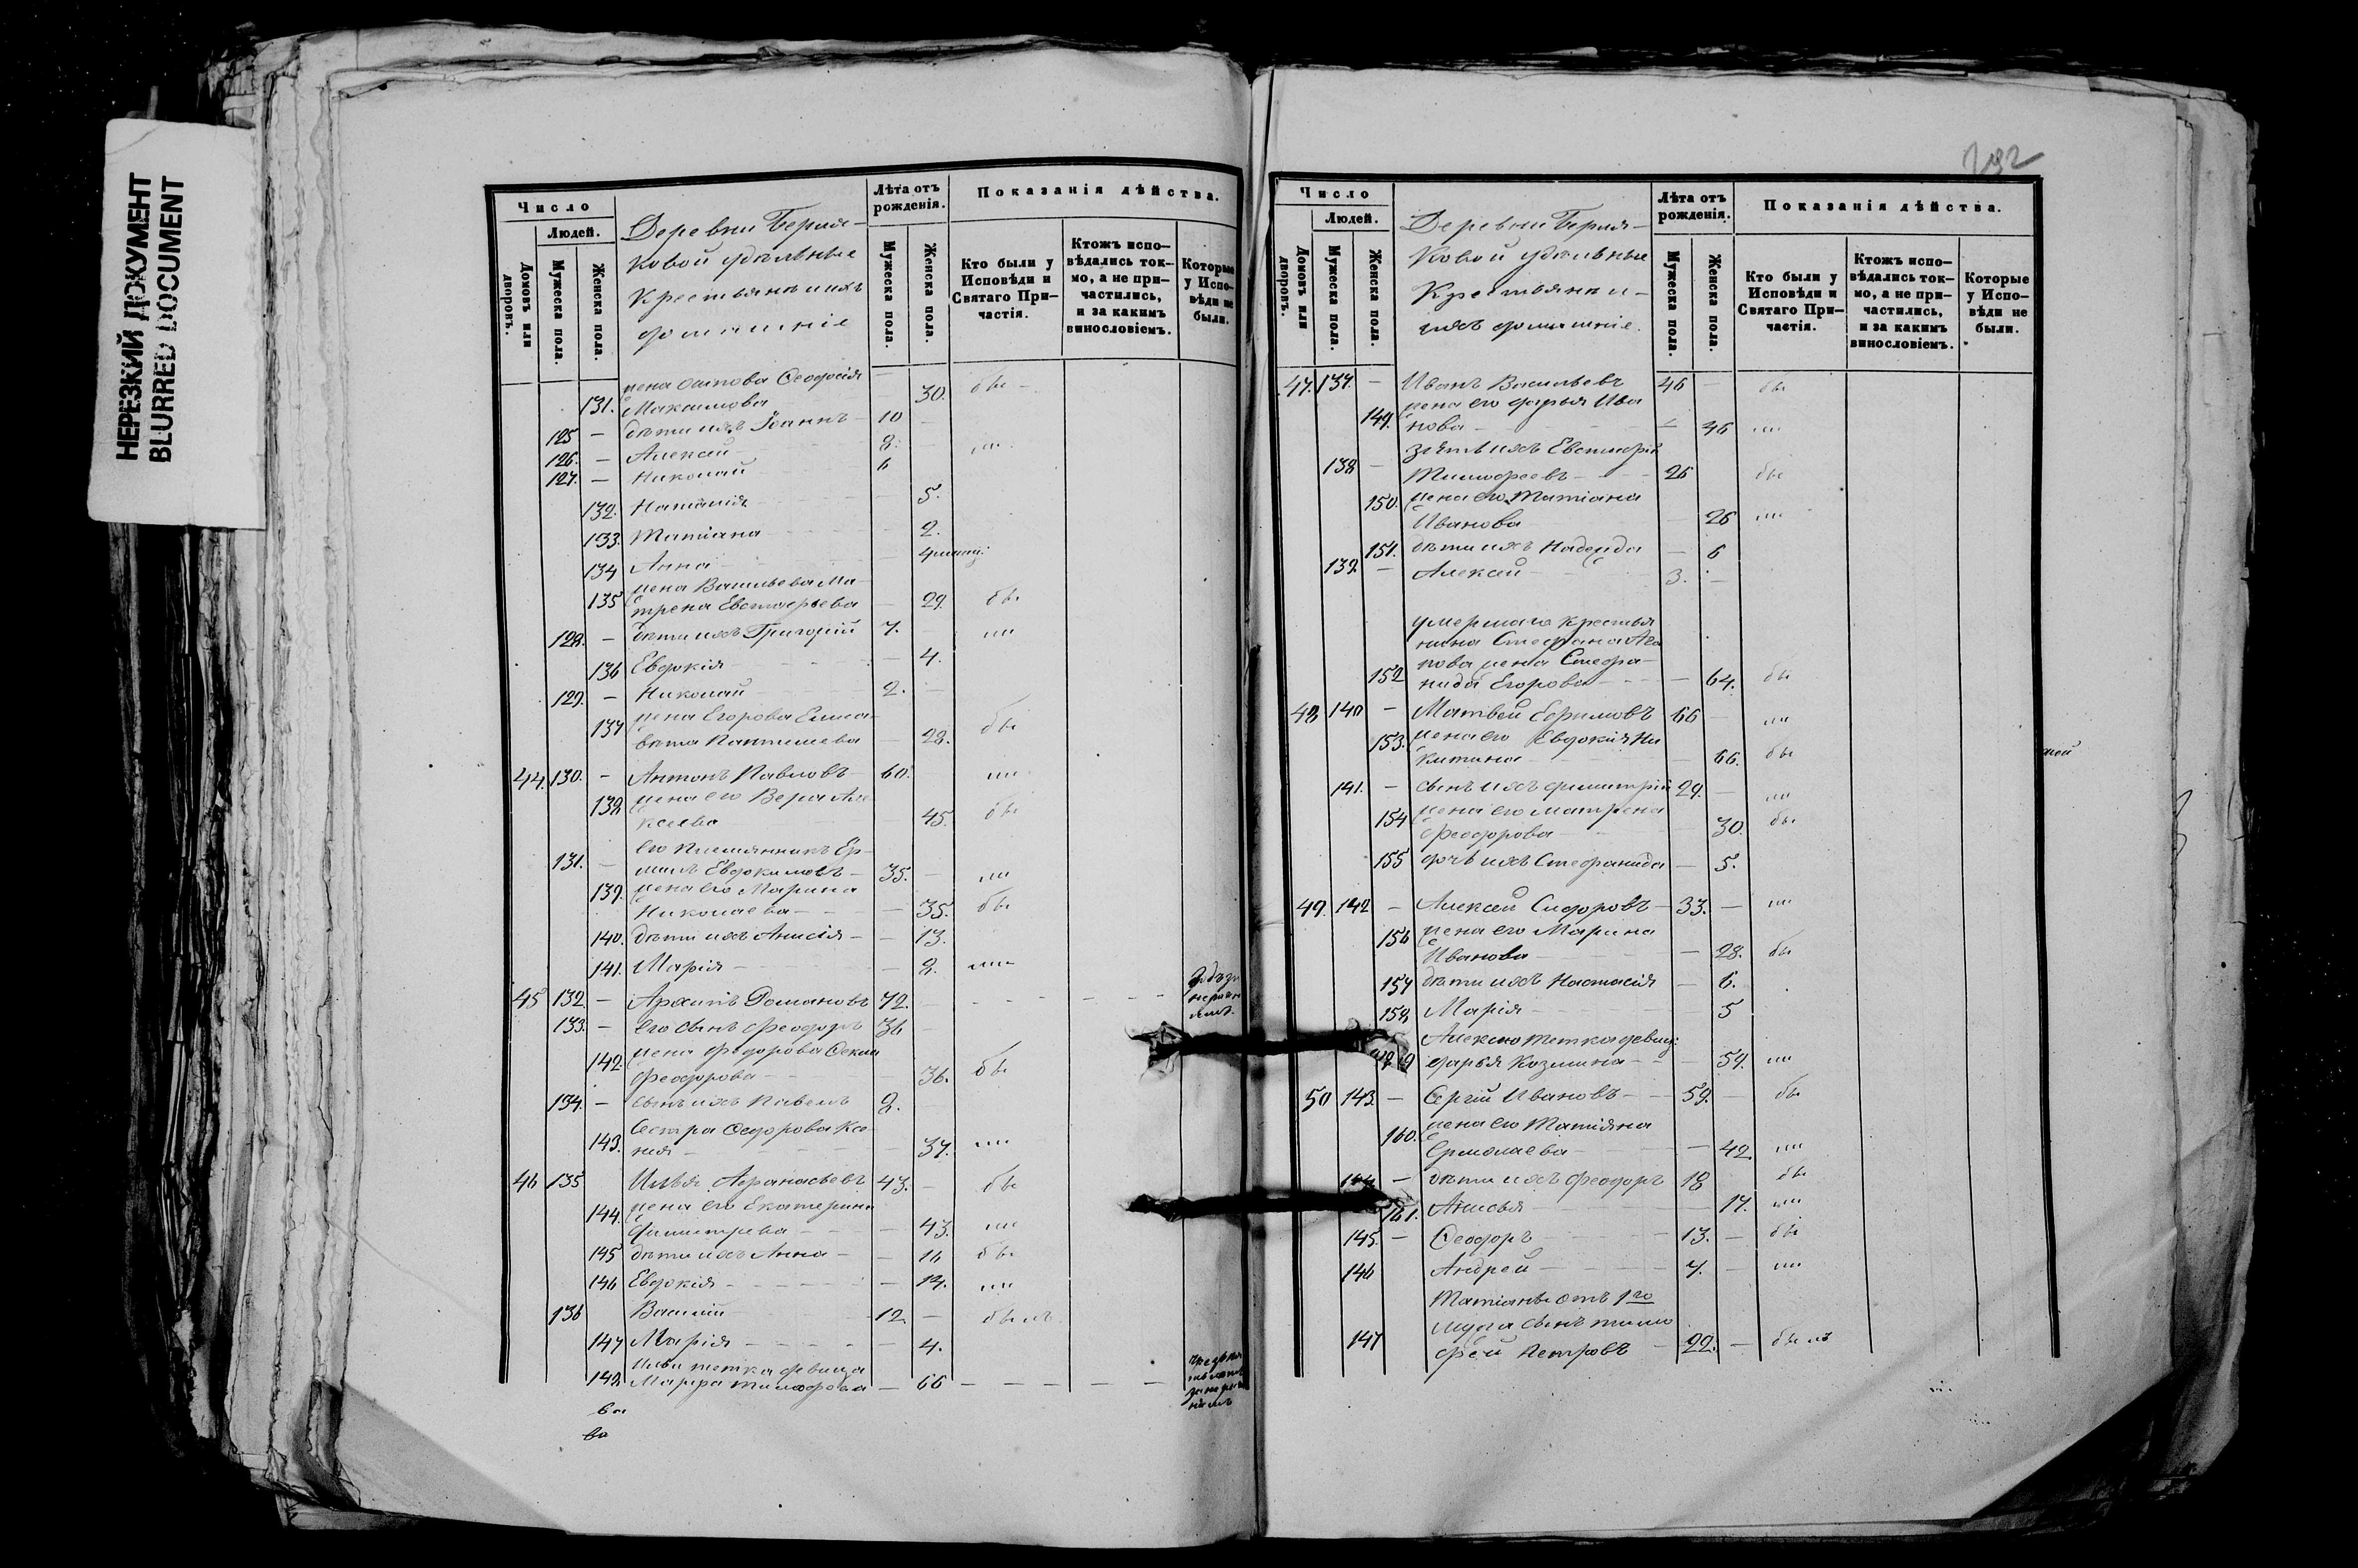 НЕРЕЗКИЙ ДОКУМЕНТ
BLURRED DOCUMENT
Число
Людей.
Домовъ или дворовъ.
Мужеска пола.
Женска пола.
Деревни
ковой удѣльные
крестьяне и ихъ
домашніе
Лѣта отъ рожденія.
Мужеска пола.
Женска пола.
Показанія дѣйства.
Кто были у Исповѣди и Святаго При-частія.
Ктожъ испо-вѣдались ток-мо, а не при-частились, и за какимъ винословіемъ.
Которые у Испо-вѣди не были.
жена Осипова Ѳеодосія
131. Максимова - 30. бы -
125 - дѣти ихъ Іоаннъ - 10
126. - Алексей - 8.
127. - Николай 6
132. Наталія - 5.
133. Татіана - 2.
134 Анна -
жена Васильева Ма
135 трена Евстаѳьева - 29. бы
128. - дѣти ихъ Григорій 7. -
136 Евдокія - 4.
129. - Николай 2. -
137 жена Егорова Елиса-
вѣта - 28. бы
44. 130. - Антонъ Павловъ - 60.
138 жена его Вера Але
ксеева 45. бы
его племянникъ Ер-
131. - милъ Евдокимовъ - 35. -
139. жена его Марина
Николаева - 35. бы
140. дѣти ихъ Анисія - 13.
141. Марія - 2.
45 132 - Архипъ Романовъ 72. -
133. - его сынъ Ѳеодоръ 36 -
142. жена Ѳедорова
Ѳеодорова - 36. бы
134. - сынъ ихъ Павелъ 2.
сестра Ѳедорова Ксе-
143. нія - 37.
46 135 Илья Аѳанасьевъ 43. - бы
144. жена его Екатерина
Димитрева - 43.
145 дѣти ихъ Анна - 16 бы
146 Евдокія - 14.
136 Василій 12. - былъ
147 Марія - 4.
Ильи тетка девица
148 Марѳа - 66 -
ва
ва
292
Число
Людей.
Домовъ или дворовъ.
Мужеска пола.
Женска пола.
Деревни
ковой удѣльные
Крестьяне и
ихъ домашніе.
Лѣта отъ рожденія.
Мужеска пола.
Женска пола.
Показанія дѣйства.
Кто были у Исповѣди и Святаго При-частія.
Ктожъ испо-вѣдались ток-мо, а не при-частились, и за какимъ винословіемъ.
Которые у Испо-вѣди не были.
47. 137. - Иванъ Васильевъ 46 - бы
жена его Дарья Ива
149. нова - 46
зять ихъ Евстаѳій
138 - Тимоѳеевъ - 26 бы
150. жена его Татіана
Иванова 26
151. дѣти ихъ Надежда - 6
139. - Алексей 3. -
умершаго крестья
нина Стефана Ага
пова жена Стефа-
152 нида Егорова - 64. бы
48 140 - Матвей Ефимовъ 66 -
153. жена его Евдокія Ни
китина 66. бы
141. - сынъ ихъ Димитрій 29. -
154 жена его Матрена
Ѳеодорова 30. бы
155 дочь ихъ Стефанида - 5.
49. 142 - Алексей Сидоровъ - 33. -
156 жена его Марина
Иванова - 28. бы
157 дѣти ихъ Настасія - 6.
158 Марія - 5
Алексея тетка девица
Дарья Козмина - 59.
50 143. - Сергій Ивановъ - 59. - бы
160. жена его Татіяна
Ермолаева - 42.
144 - дѣти ихъ Ѳеодоръ 18 бы
161. Анисья - 17.
145. - Ѳеодоръ - 13. - бы
146 Андрей - 7. -
Татіаны отъ 1го
мужа сынъ Тимо
147 фей Петровъ - 22. - былъ